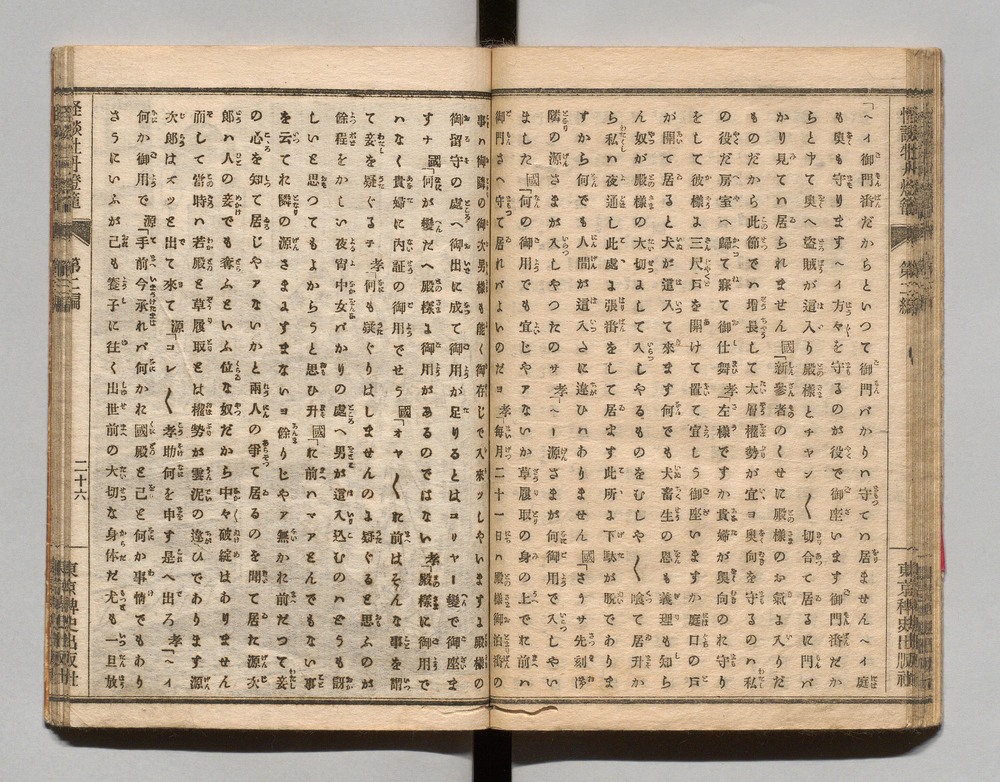 怪談牡丹燈籠 第二編
東京稗史出版社
「ヘイ御門番だからといつて御門バかりハ守て居ませんヘイ庭
も奥も守りますヘイ方々を守るのが役で御座います御門番だか
らと申て奥へ盗賊が這入り殿様とチヤン〳〵切合て居るに門バ
かり見てハ居られません國「新參者のくせに殿様のお氣に入りだ
ものだから此節でハ増長して大層權勢が宜ヨ奥向を守るのハ私
の役だ房室へ歸て寐て御仕舞孝「左様ですか貴婦が奥向のお守り
をして彼様よ三尺戸を開けて置て宜しう御座いますか庭口の戸
が開て居ると犬が這入て來ます何でも犬畜生の恩も義理も知ら
ん奴が殿様の大切よして入しやるものをむしや〳〵喰て居升か
ら私ハ夜通し此處よ張番をして居ます此所よ下駄が脱でありま
すから何でも人間が這入さに違ひハありません國「さうサ先刻
隣の源さまが入しやつたのサ孝「ヘー源さまが何御用で入しやい
ました國「何の御用でも宜じやアないか草履取の身の上でお前ハ
御門さへ守て居れバよいのだヨ孝「毎月二十一日ハ殿様御泊番の
事ハ御隣の御次男様も能く御存じで入來ツしやいますよ殿様の
御留守の處へ御出に成て御用が足りるとはコリヤー變で御座ま
すナ國「何が變だヘ殿様よ御用があるのではない孝「殿様に御用で
ハなく貴婦に内証の御用でせう國「オヤ〳〵お前はそんな事を謂
て妾を疑ぐるチ孝「何も疑ぐりはしませんのよ疑ぐると思ふのが
餘程をかしい夜宵中女バかりの處へ男が這入込むのハどうも訝
しいと思つてもよからうと思ひ升國「お前ハマアとんでもない事
を云てお隣の源さまよすまないヨ餘りじやアなかお前だつて妾
の心を知て居じやアないかと兩人の爭て居るのを聞て居た源次
郎ハ人の妾でも奪ふといふ位な奴だから中々破綻はありません
而して當時ハ若殿と草履取とは權勢が雲泥の違ひであります源
次郎はズツと出て來て源「コレ〳〵孝助何を申す是へ出ろ孝「ヘイ
何か御用で源「手前今承れバ何かお國殿と己と何か事情でもあり
さうにいふが己も養子に往く出世前の大切な身体だ尤も一旦放
怪談牡丹燈籠 第二編
二十六
東京稗史出版社